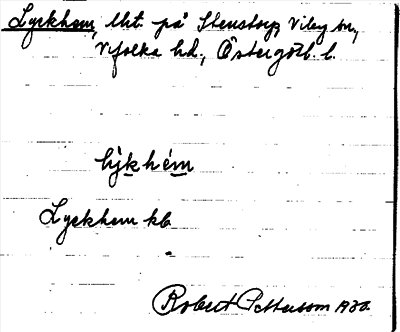 Lyckhem, lht. på Stenstorp, Viby sn,
Vifolka hd., Östergötl. l.
lýkhém
Lyckhem kb
Robert Pettersson 1930.